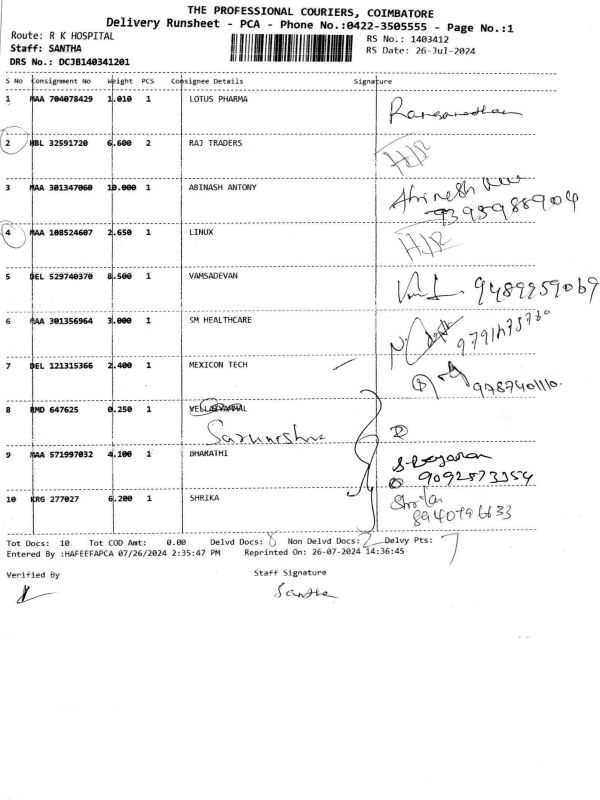 THE PROFESSIONAL COURIERS, COIMBATORE
Delivery Runsheet - PCA - Phone No.:0422-3505555 - Page No.:1
Route: R K HOSPITAL RS No.: 1403412
Staff: SANTHA RS Date: 26-Jul-2024
DRS No.: DCJB140341201
S No Consignment No Weight PCS Consignee Details Signature
1 MAA 704078429 1.010 1 LOTUS PHARMA
2 HBL 32591720 6.600 2 RAJ TRADERS
3 MAA 301347060 10.000 1 ABINASH ANTONY
9395988904
4 MAA 108524607 2.650 1 LINUX
5 DEL 529740370 8.500 1 VAMSADEVAN 9489959069
6 MAA 301356964 3.000 1 SM HEALTHCARE
7 DEL 121315366 2.400 1 MEXICON TECH
9787401110.
8 RMD 647625 0.250 1
9 MAA 571997032 4.100 1 BHARATHI
10 KRG 277027 6.200 1 SHRIKA
8940796633
Tot Docs: 10 Tot COD Amt: 0.00 Delvd Docs: 8 Non Delvd Docs: 2 Delvy Pts: 7
Entered By :HAFEEFAPCA 07/26/2024 2:35:47 PM Reprinted On: 26-07-2024 14:36:45
Verified By Staff Signature
Santha